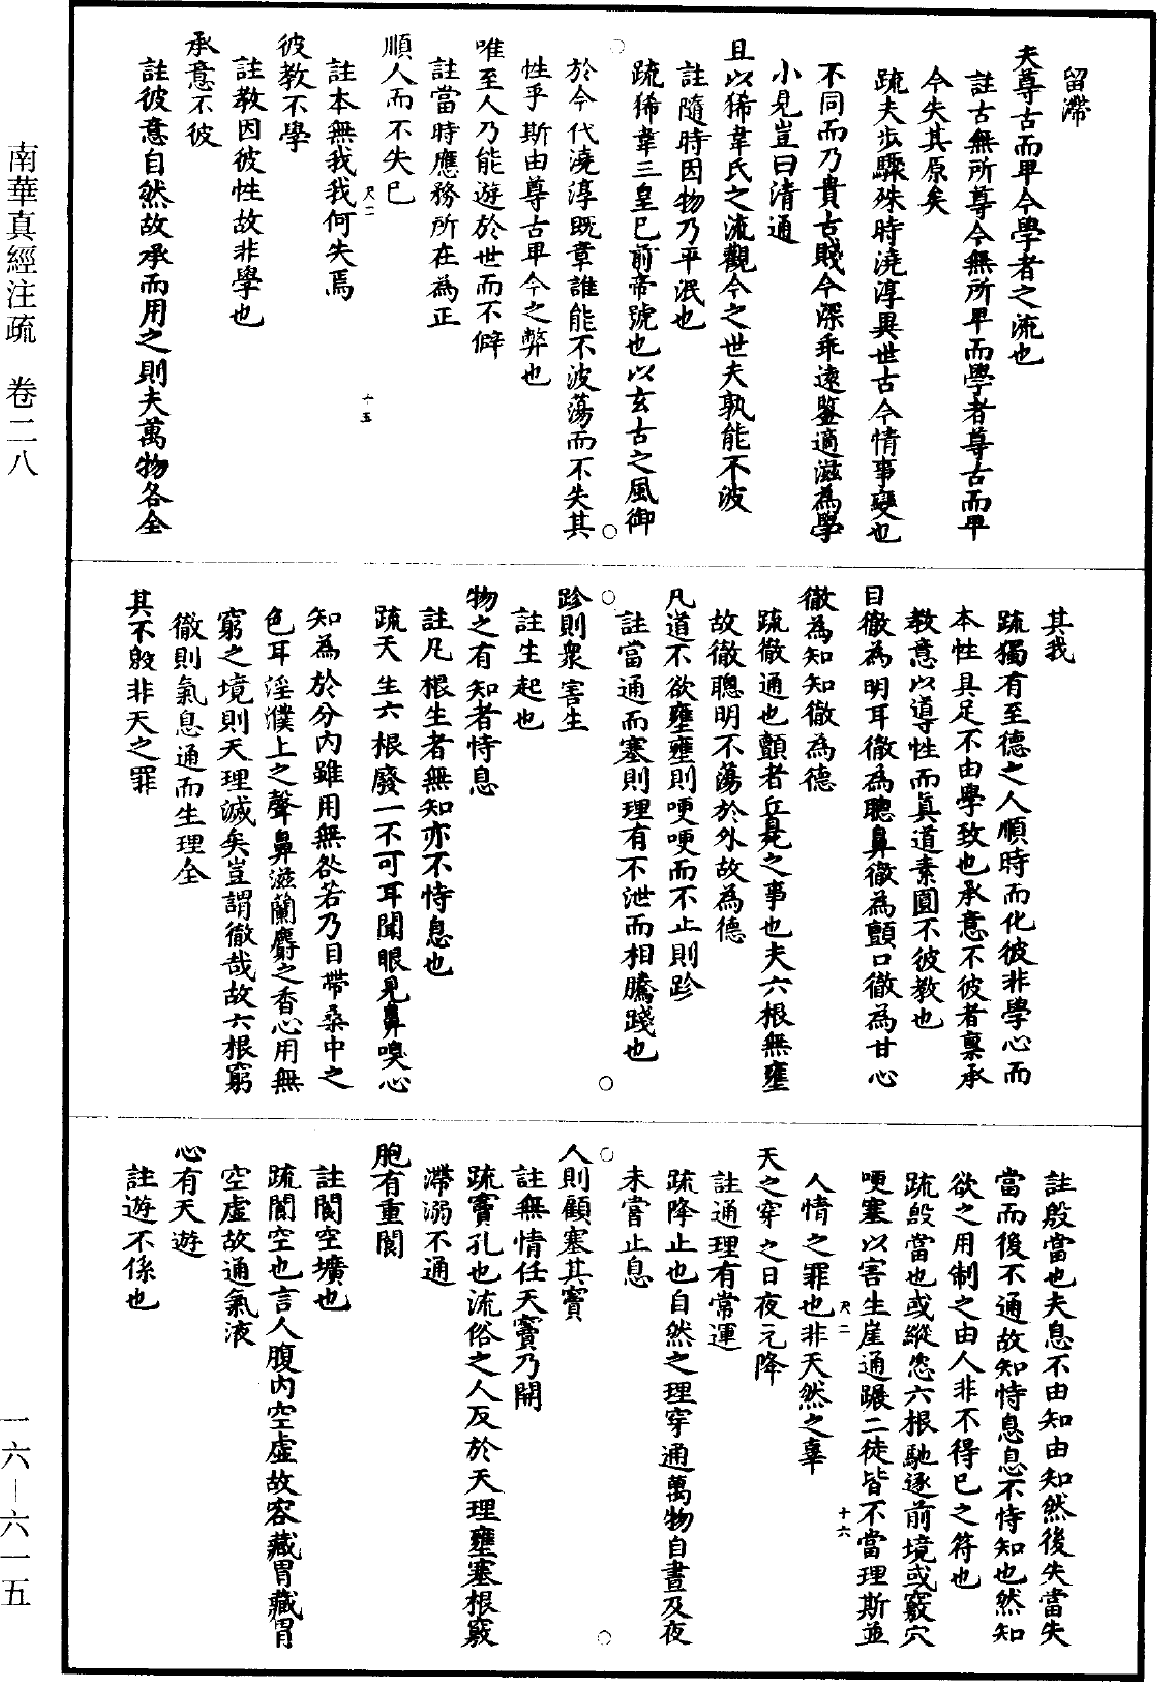 南華真經注疏　卷二八
一六—六一五
留滯
夫尊古而卑今學者之流也
註古無所尊今無所卑而學者尊古而卑
今失其原矣
疏夫步驟殊時澆淳異世古今情事變也
不同而乃貴古賤今深乖遠鑒適滋為學
小見豈曰清通
且以狶韋氏之流觀今之世夫孰能不波
註隨時因物乃平泯也
疏狶韋三皇已前帝號也以玄古之風御
於今代澆淳既章誰能不波蕩而不失其
性乎斯由尊古卑今之弊也
唯至人乃能遊於世而不僻
註當時應務所在為正
順人而不失己
尺二
十五
註本無我我何失焉
彼教不學
註教因彼性故非學也
承意不彼
註彼意自然故承而用之則夫萬物各全
其我
疏獨有至德之人順時而化彼非學心而
本性具足不由學致也承意不彼者稟承
教意以導性而真道素圓不彼教也
目徹為明耳徹為聰鼻徹為顫口徹為甘心
徹為知知徹為德
疏徹通也顫者辛臭之事也夫六根無壅
故徹聰明不蕩於外故為德
凡道不欲壅壅則哽哽而不止則跈
註當通而塞則理有不泄而相騰踐也
跈則衆害生
註生起也
物之有知者恃息
註凡根生者無知亦不恃息也
疏天生六根廢一不可耳聞眼見鼻嗅心
知為於分內雖用無咎若乃目帶桑中之
色耳淫濮上之聲鼻滋蘭麝之香心用無
窮之境則天理滅矣豈謂徹哉故六根窮
徹則氣息通而生理全
其不殷非天之罪
註殷當也夫息不由知由知然後失當失
當而後不通故知恃息息不恃知也然知
欲之用制之由人非不得已之符也
疏殷當也或縱恣六根馳逐前境或竅穴
哽塞以害生崖通蹍二徒皆不當理斯並
尺二
十六
人情之罪也非天然之辜
天之穿之日夜无降
註通理有常運
疏降止也自然之理穿通萬物自晝及夜
未嘗止息
人則顧塞其竇
註無情任天竇乃開
疏竇孔也流俗之人反於天理壅塞根竅
滯溺不通
胞有重閬
註閬空壙也
疏閬空也言人腹內空虛故容藏胃藏胃
空虛故通氣液
心有天遊
註遊不係也